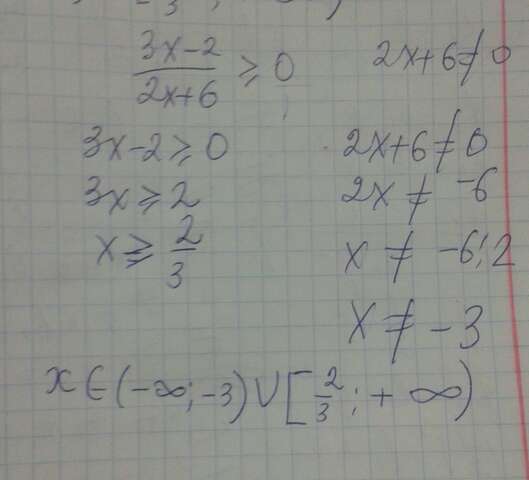 3
)
3x-2/2x+6 ⩾ 0   2x+6≠0
3x-2⩾0   2x+6≠0
3x⩾2   2x ≠ -6
x⩾ 2/3   x ≠ -6:2
x ≠ -3
x∈(-∞;-3)∪[2/3;+∞)